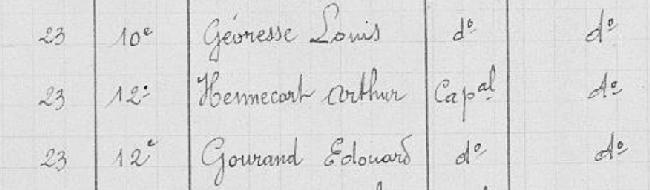 23 10e Géoresse Louis do do
23 12e Hennecart Arthur Capal do
23 12e Gourand Edouard do do